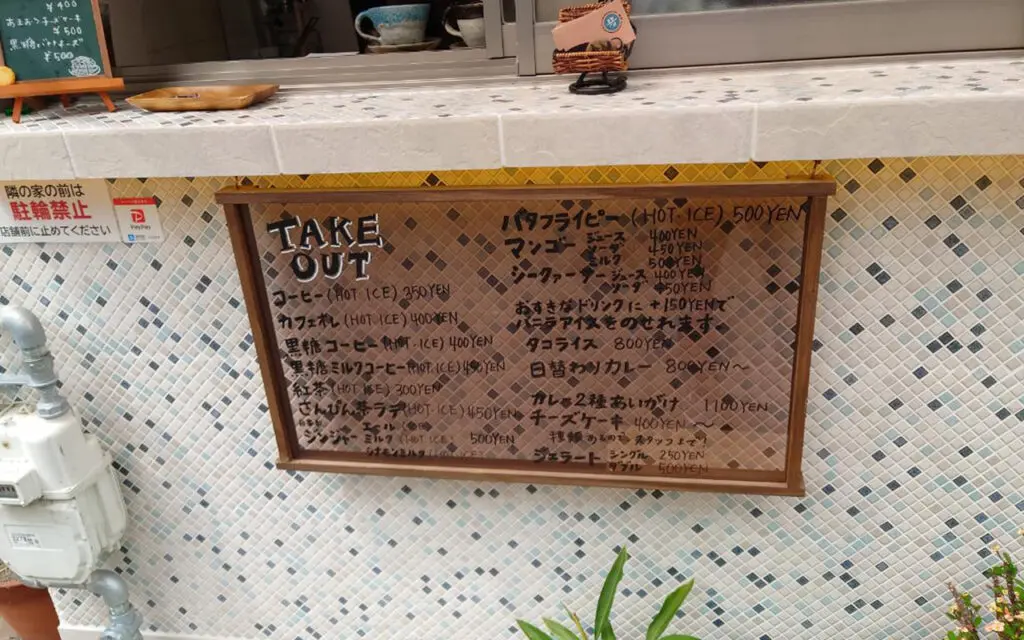 ¥400
¥500
¥500
隣の家の前は
駐輪禁止
店舗前に止めてください
PayPay
TAKE
OUT
コーヒー(HOT・ICE) 350YEN
カフェオレ(HOT・ICE) 400YEN
黒糖コーヒー(HOT・ICE) 400YEN
黒糖ミルクコーヒー(HOT・ICE) 450YEN
紅茶(HOT・ICE) 300YEN
さんぴん茶ラテ(HOT・ICE) 450YEN
エール
ジンジャー ミルク (HOT・ICE) 500YEN
シナモンミルク (HOT・ICE)
バタフライピー(HOT・ICE) 500YEN
マンゴー ジュース 400YEN
ソーダ 450YEN
ミルク 500YEN
シークァーサー ジュース 400YEN
ソーダ 450YEN
おすきなドリンクに +150YENで
バニラアイスをのせれます。
タコライス 800YEN
日替わりカレー 800YEN〜
カレー2種あいがけ 1100YEN
チーズケーキ 400YEN 〜
スタッフまで!
ジェラート シングル 250YEN
ダブル 500YEN